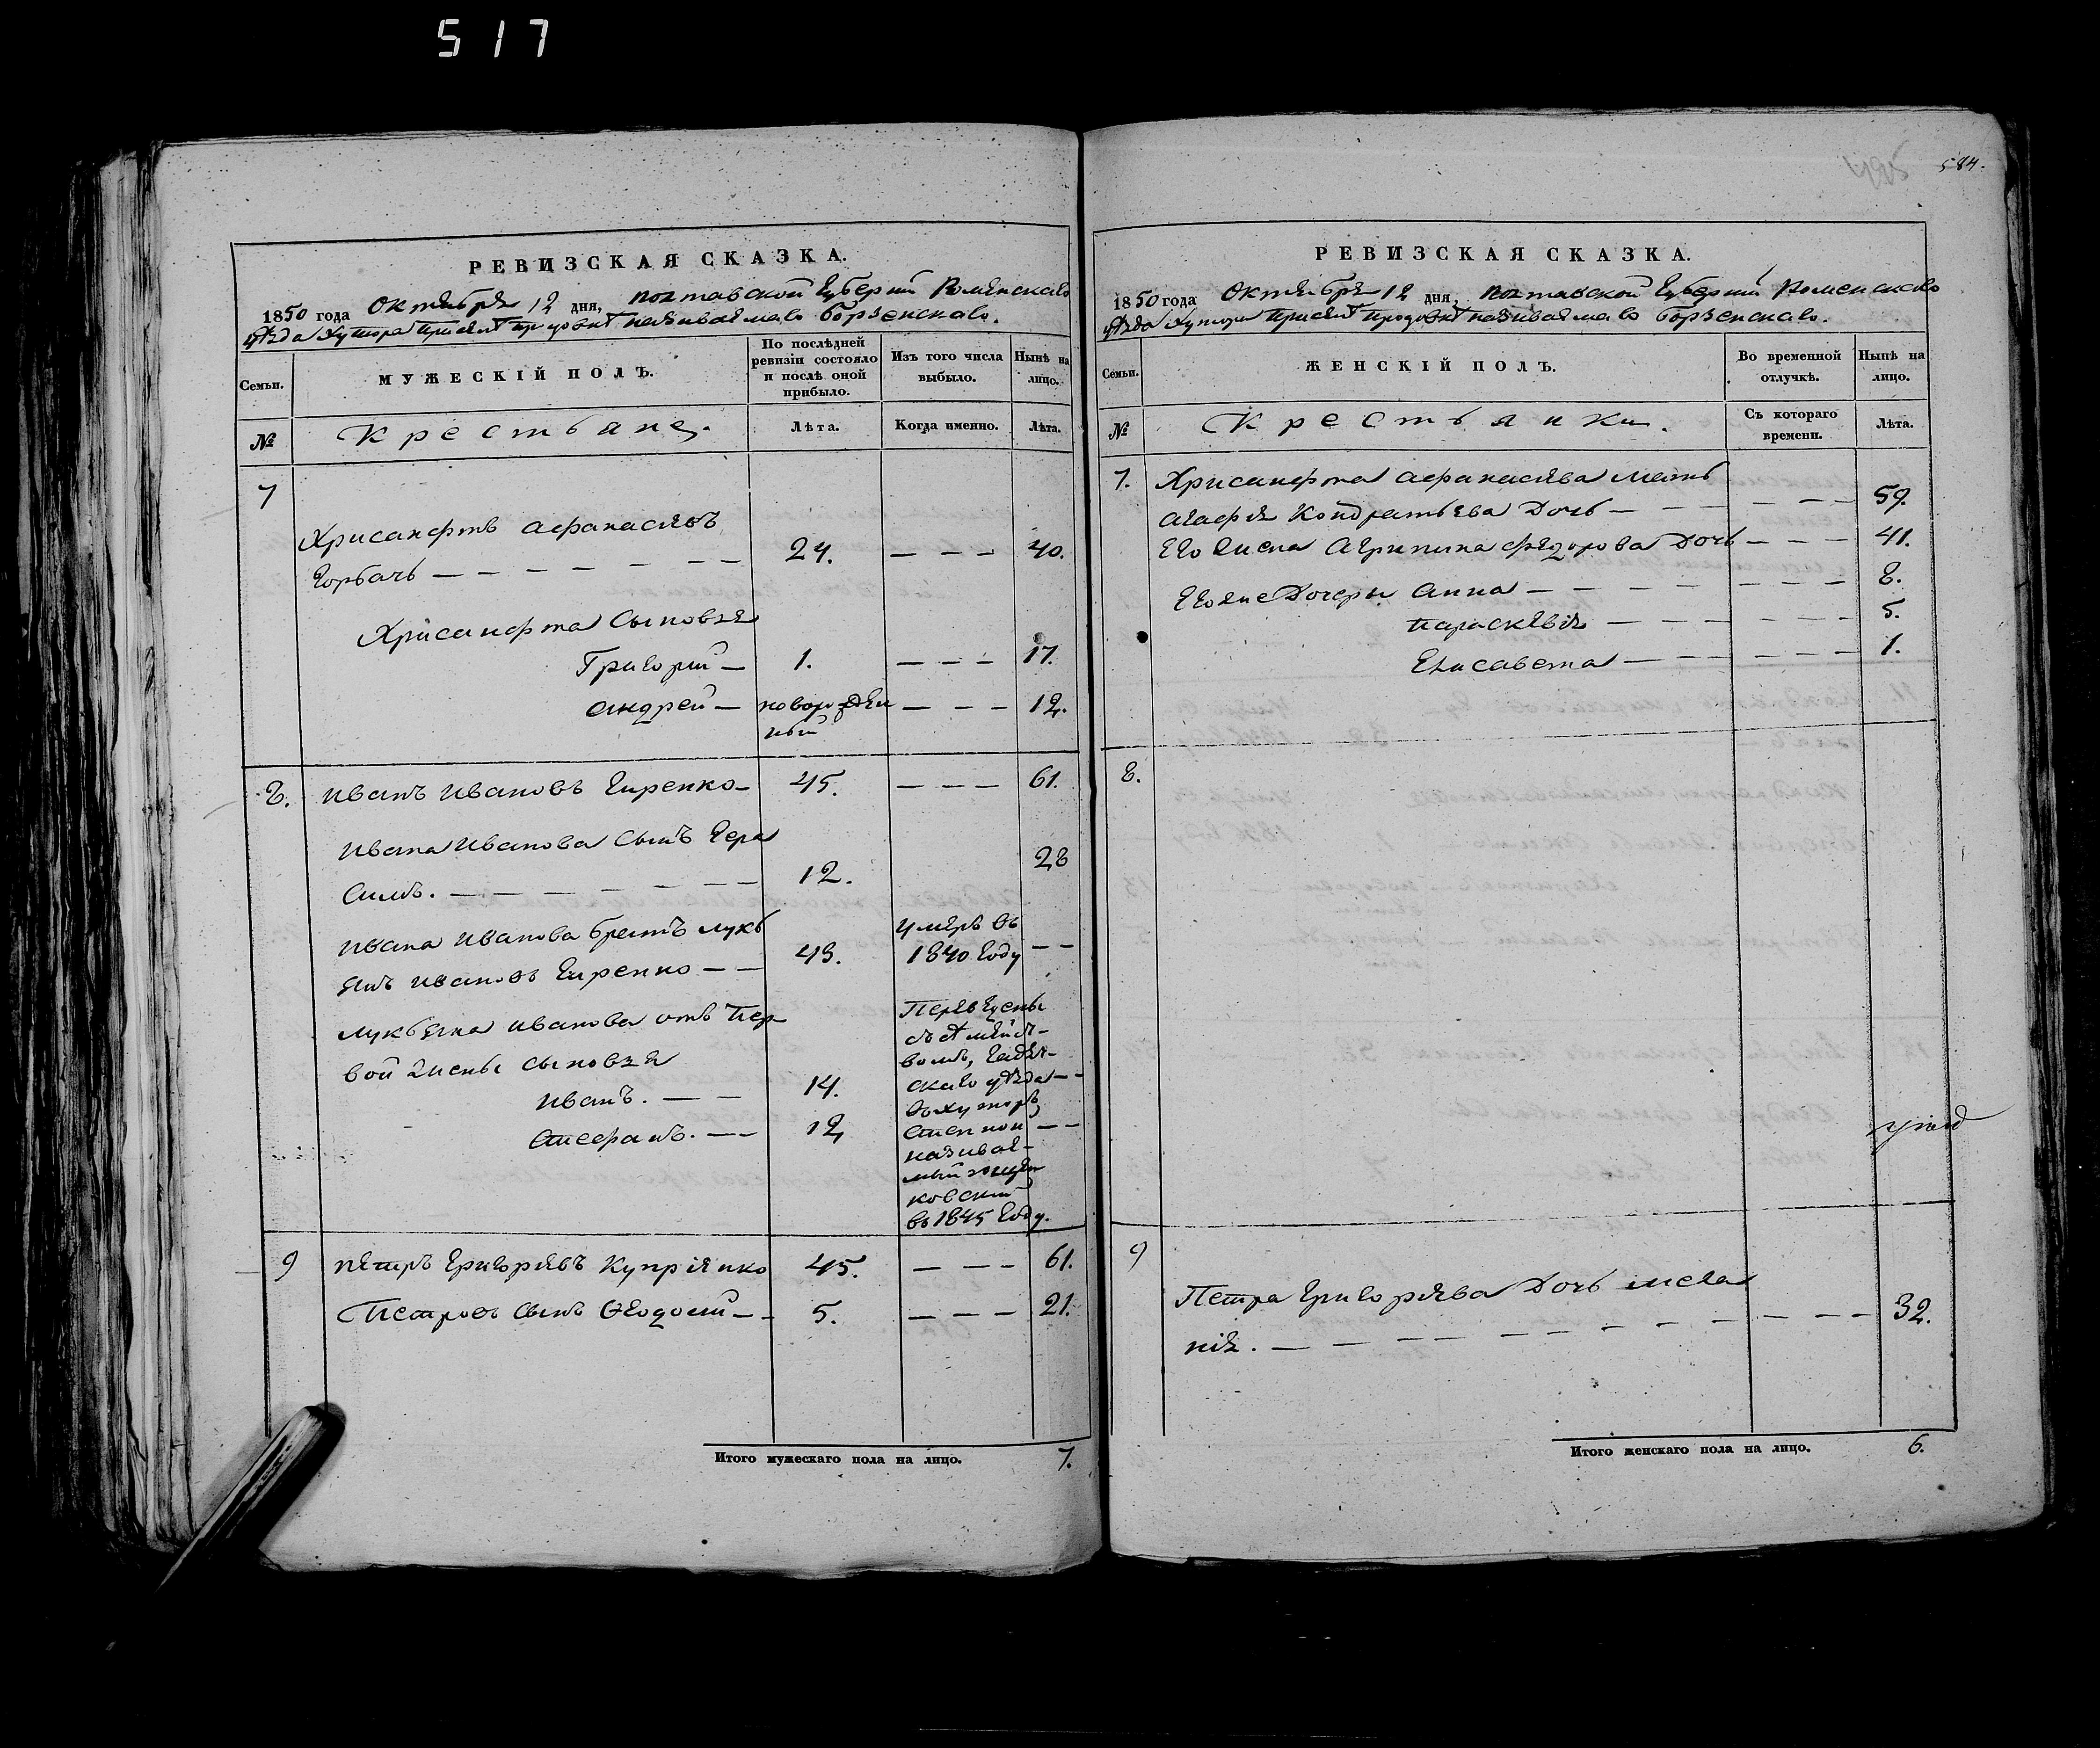 517
584.
РЕВИЗСКАЯ СКАЗКА.
1850 года Октября 12 дня, Полтавской Губерніи Роменскаго
уѣзда Хутора при називаемаго Борзенскаго.
Семьи.
МУЖЕСКІЙ ПОЛЪ.
По послѣдней ревизіи состояло и послѣ оной прибыло.
Изъ того числа выбыло.
Нынѣ на лицо.
№
Крестьяне.
Лѣта.
Когда именно.
Лѣта.
7
Хрисанфтъ Афанасіевъ
Горбачь — — — — — — — 24. — — — 40.
Хрисанфта Сыновья
Григорій — 1. — — — 17.
Андрей — новорожден — — — 12.
ный
8. Иванъ Ивановъ Гиренко — 45. — — — 61.
Ивана Иванова Сынъ Гера
симъ. — — — — — — — 12. 28
Ивана Иванова братъ Лукь
янъ Ивановъ Гиренко — — 43. умеръ въ 1840 году — —
Лукьяна Иванова отъ пер
вой жены сыновья
Иванъ. — — 14. — —
Стефанъ. — — 12 — —
Переведены
съ семейст-
вомъ, Гадяч-
скаго уѣзда
въ хуторъ
Степной
називае-
мый
ковский
въ 1845 году.
9 Петръ Григорьевъ Купріянко 45. — — — 61.
Петровъ сынъ Феодосій — — 5. — — — 21.
Итого мужескаго пола на лицо. 7.
РЕВИЗСКАЯ СКАЗКА.
1850 года Октября 12 дня, Полтавской Губерніи Роменскаго
уѣзда Хутора при називаемаго Борзенскаго.
Семьи.
ЖЕНСКІЙ ПОЛЪ.
Во временной отлучкѣ.
Нынѣ на лицо.
№
Крестьянки.
Съ котораго времени.
Лѣта.
7. Хрисанфта Афанасіева мать
Агафія Кондратьева Дочь — — — — — 59.
Его жена Агрипина Федорова Дочь — — — 41.
Его же Дочери Анна — — — — — — — 8.
Параскевія — — — — — — 5.
Елисавета — — — — — — 1.
8.
9
Петра Григорьева Дочь Мела
нія. — — — — — — — — — — — — 32.
Итого женскаго пола на лицо. 6.